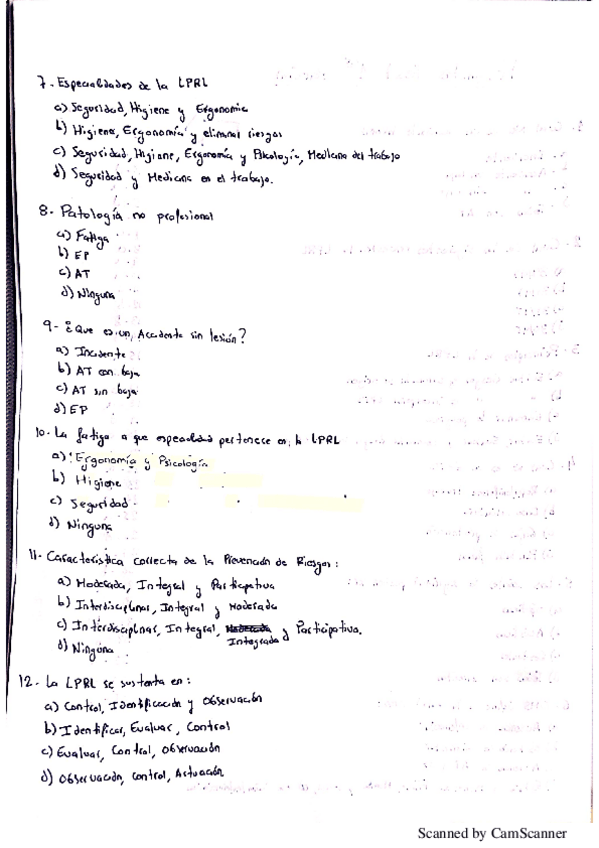 7. Especialidades de la LPRL
a) Seguridad, Higiene y Ergonomia
b) Higiene, Ergonomía y eliminar riesgos
c) Seguridad, Higiene, Ergonomía y Psicología, Medicina del trabajo
d) Seguridad y Medicina en el trabajo.
8. Patología no profesional
a) Fatiga
b) EP
c) AT
d) Ninguna
9- ¿Que es un Accidente sin lesión?
a) Incidente
b) AT con baja
c) AT sin baja
d) EP
10. La fatiga a que especialidad pertenece en la LPRL
a) Ergonomía y Psicología
b) Higiene
c) Seguridad
d) Ninguna
11. Caracteristica correcta de la Prevención de Riesgos:
a) Moderada, Integral y Participativa
b) Interdisciplinar, Integral y Moderada
c) Interdisciplinar, Integral, Moderada y Participativa.
Integrada
d) Ninguna
12. La LPRL se sustenta en:
a) Control, Identificación y Observación
b) Identificar, Evaluar, Control
c) Evaluar, Control, Observación
d) Observación, Control, Actuación
Scanned by CamScanner